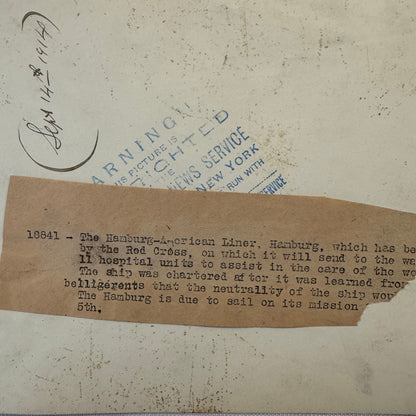 (Sept 14th 1914)
WARNING!
THIS PICTURE IS
NEWS SERVICE
NEW YORK
RUN WITH
SERVICE
18841 - The Hamburg-American Liner, Hamburg, which has be
by the Red Cross, on which it will send to the wa
11 hospital units to assist in the care of the wo
The ship was chartered after it was learned from
belligerents that the neutrality of the ship wou
The Hamburg is due to sail on its mission
5th.